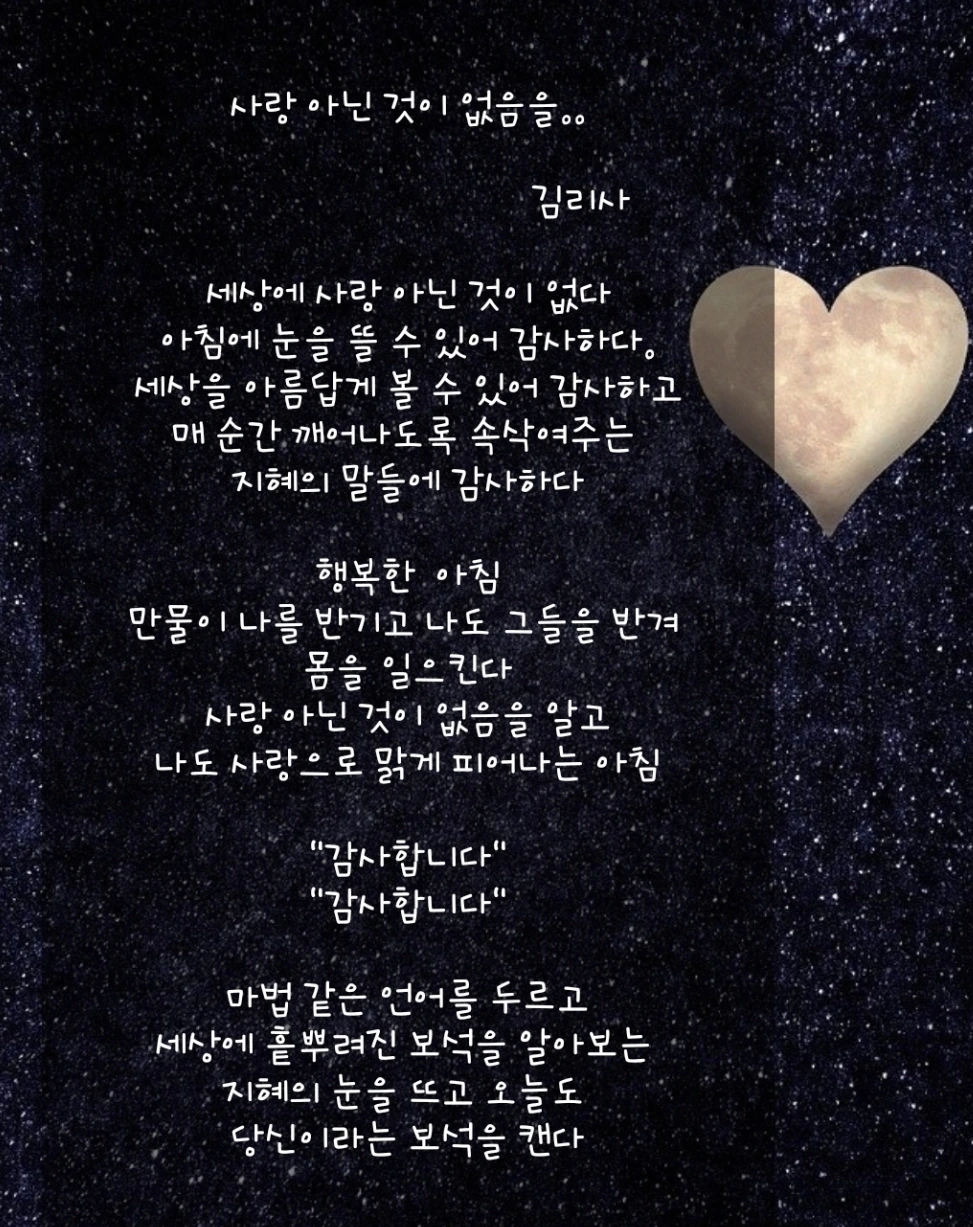 사랑 아닌 것이 없음을。。
김리사
세상에 사랑 아닌 것이 없다
아침에 눈을 뜰 수 있어 감사하다。
세상을 아름답게 볼 수 있어 감사하고
매 순간 깨어나도록 속삭여주는
지혜의 말들에 감사하다
행복한 아침
만물이 나를 반기고 나도 그들을 반겨
몸을 일으킨다
사랑 아닌 것이 없음을 알고
나도 사랑으로 맑게 피어나는 아침
"감사합니다"
"감사합니다"
마법 같은 언어를 두르고
세상에 흩뿌려진 보석을 알아보는
지혜의 눈을 뜨고 오늘도
당신이라는 보석을 캔다